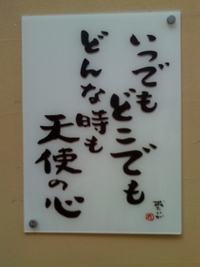 いつでも
どこでも
どんな時も
天使の心